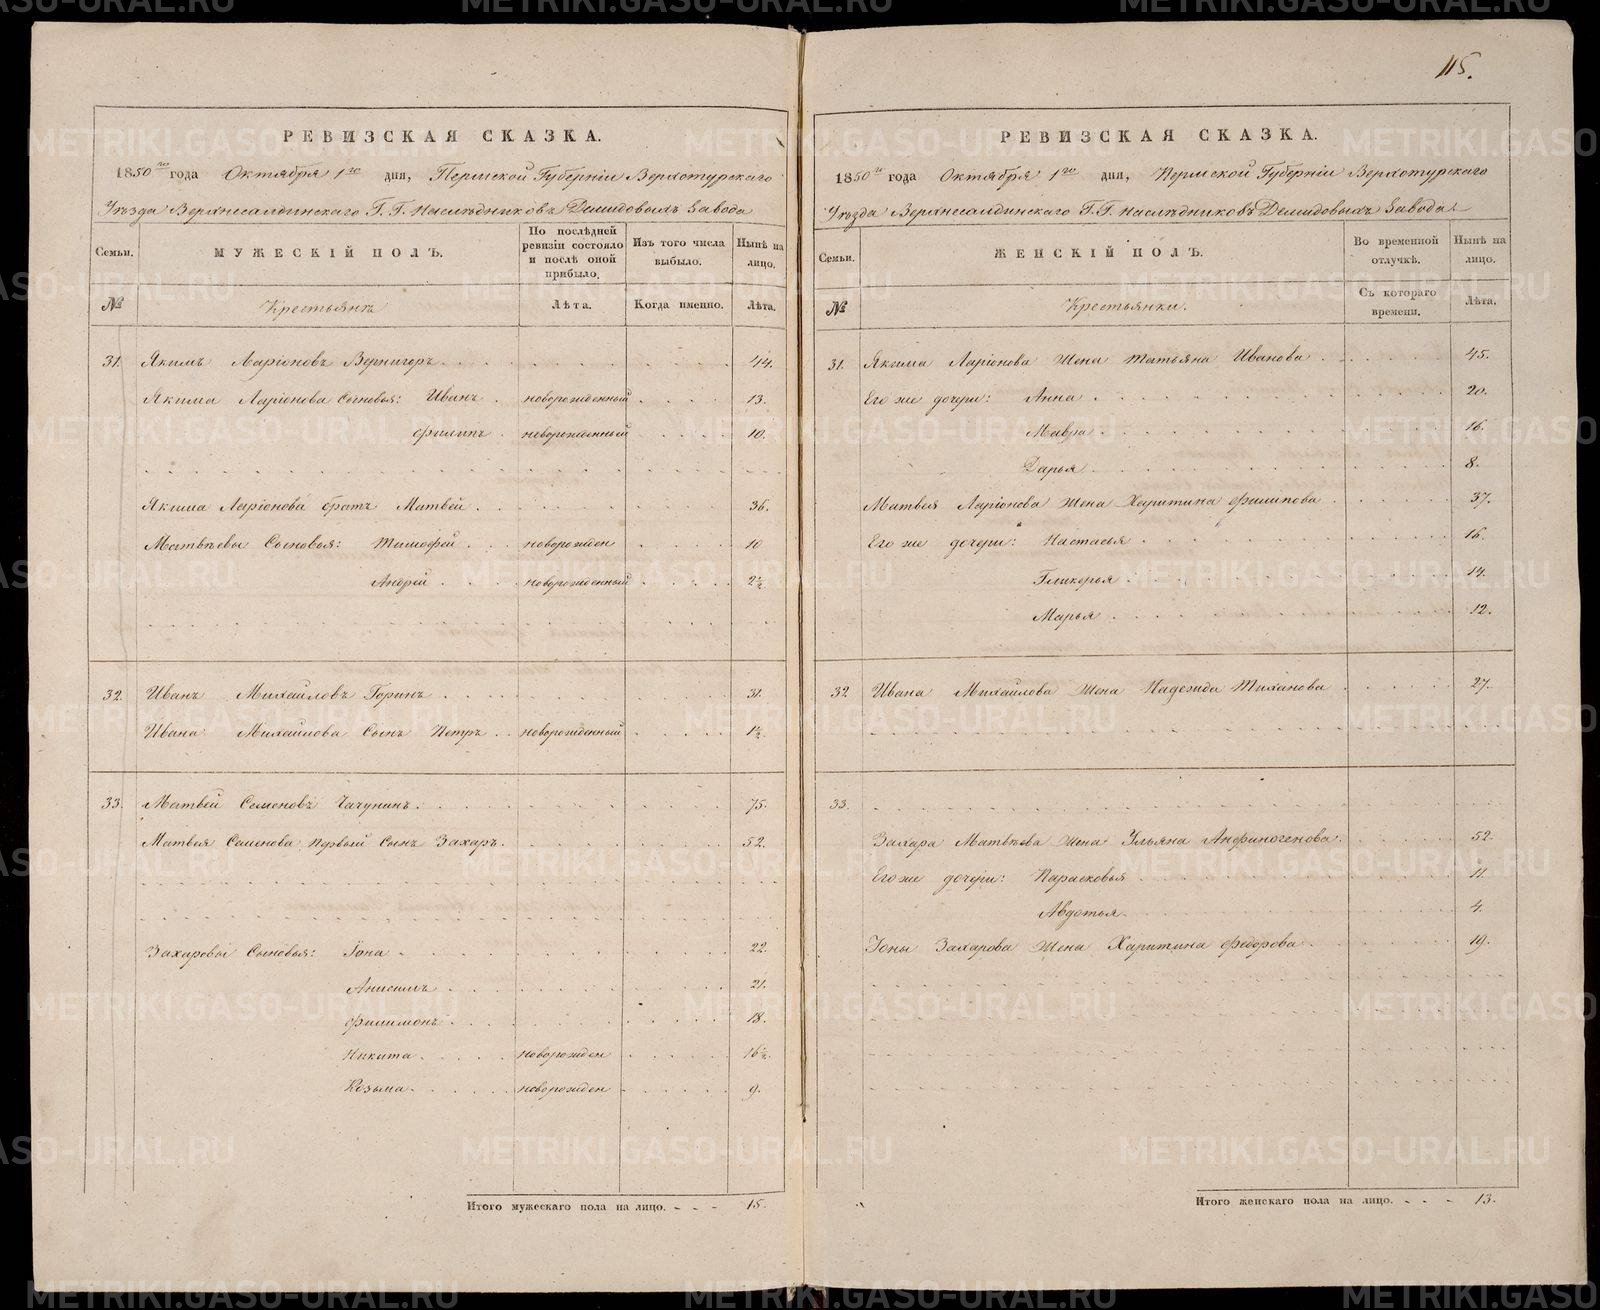 115.
РЕВИЗСКАЯ СКАЗКА.
1850го года Октября 1го дня, Пермской Губерніи Верхотурскаго
Уѣзда Верхнесалдинскаго Г. Г. Наслѣдниковъ Демидовыхъ Завода
Семьи. МУЖЕСКІЙ ПОЛЪ. По послѣдней ревизіи состояло и послѣ оной прибыло. Изъ того числа выбыло. Нынѣ на лицо.
№ Крестьянъ Лѣта. Когда именно. Лѣта.
31. Якимъ Ларіоновъ Вернигоръ 44.
Якима Ларіонова Сыновья: Иванъ новорожденный 13.
Филипъ новорожденный 10.
Якима Ларіонова братъ Матвей 36.
Матвѣевы Сыновья: Тимофей новорожден 10
Андрей новорожденный 2½
32. Иванъ Михайловъ Горинъ 31.
Ивана Михайлова Сынъ Петръ новорожденный 1½
33. Матвей Семеновъ Чачунинъ 75.
Матвея Семенова первый Сынъ Захаръ 52.
Захаровы Сыновья: Іона 22.
Анисимъ 21.
Филимонъ 18.
Никита новорожден 16½
Козьма новорожден 9.
Итого мужескаго пола на лицо. 15.
РЕВИЗСКАЯ СКАЗКА.
1850го года Октября 1го дня, Пермской Губерніи Верхотурскаго
Уѣзда Верхнесалдинскаго Г. Г. Наслѣдниковъ Демидовыхъ Завода
Семьи. ЖЕНСКІЙ ПОЛЪ. Во временной отлучкѣ. Нынѣ на лицо.
№ Крестьянки. Съ котораго времени. Лѣта.
31. Якима Ларіонова Жена Татьяна Иванова 45.
Его же дочери: Анна 20.
Мавра 16.
Дарья 8.
Матвея Ларіонова Жена Харитина Филипова 37.
Его же дочери: Настасья 16.
Гликерья 14.
Марья 12.
32. Ивана Михайлова Жена Надежда Тиханова 27.
33.
Захара Матвѣева Жена Ульяна Анфиногенова 52.
Его же дочери: Парасковья 11.
Авдотья 4.
Іоны Захарова Жена Харитина Федорова 19.
Итого женскаго пола на лицо. 13.
METRIKI.GASO-URAL.RU